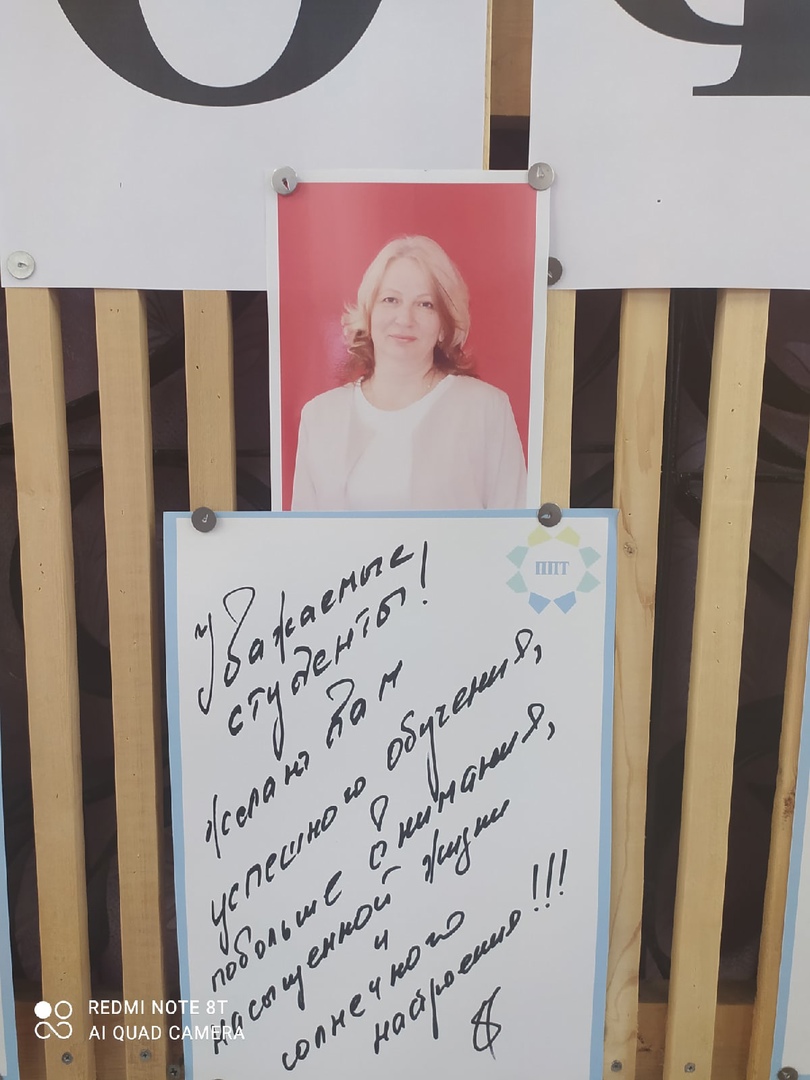 О Ч
ППТ
Уважаемые
студенты!
Желаю Вам
успешного обучения,
побольше внимания,
насыщенной жизни
и
солнечного
настроения!!!
REDMI NOTE 8T
AI QUAD CAMERA